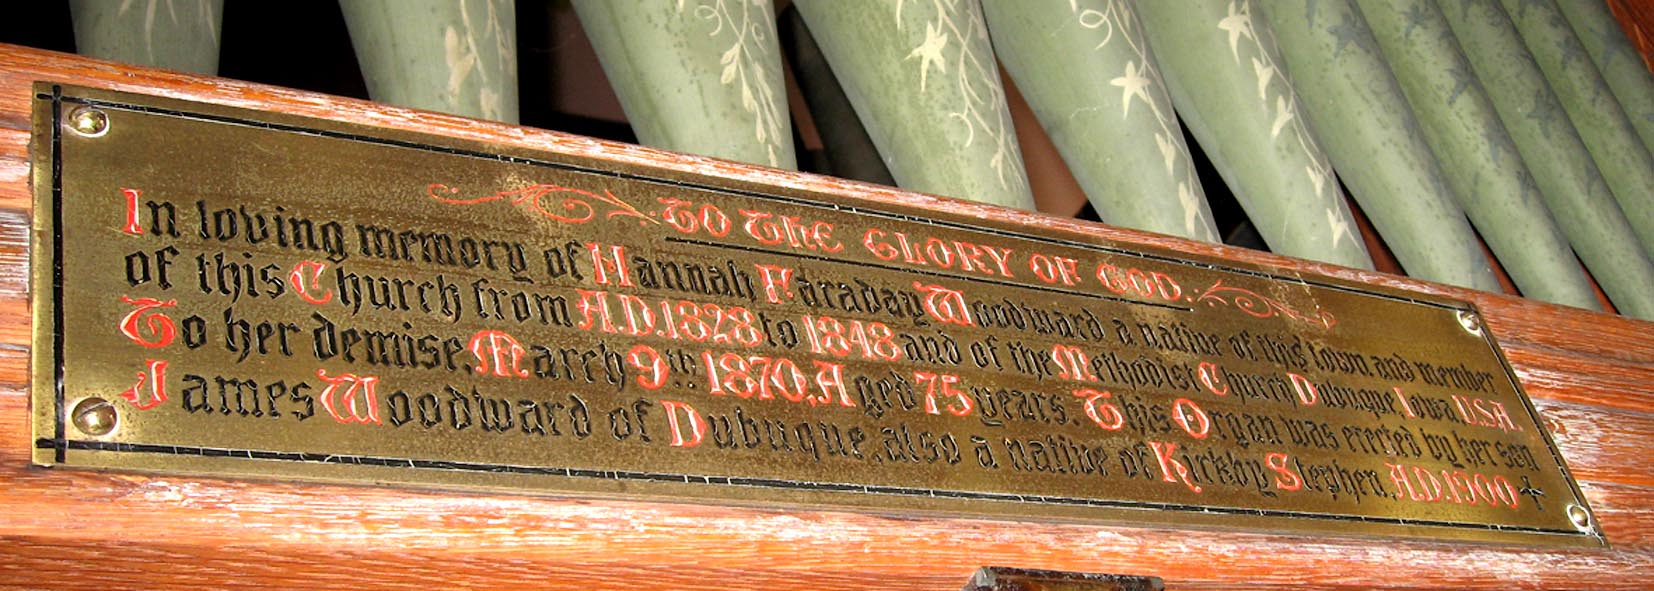 TO THE GLORY OF GOD.
In loving memory of Hannah Faraday Woodward a native of this town and member
of this Church from A.D. 1828 to 1848 and of the Methodist Church Dubuque, Iowa. USA.
To her demise, March 9th 1870, Aged 75 years. This Organ was erected by her son
James Woodward of Dubuque, also a native of Kirkby Stephen, A.D. 1900